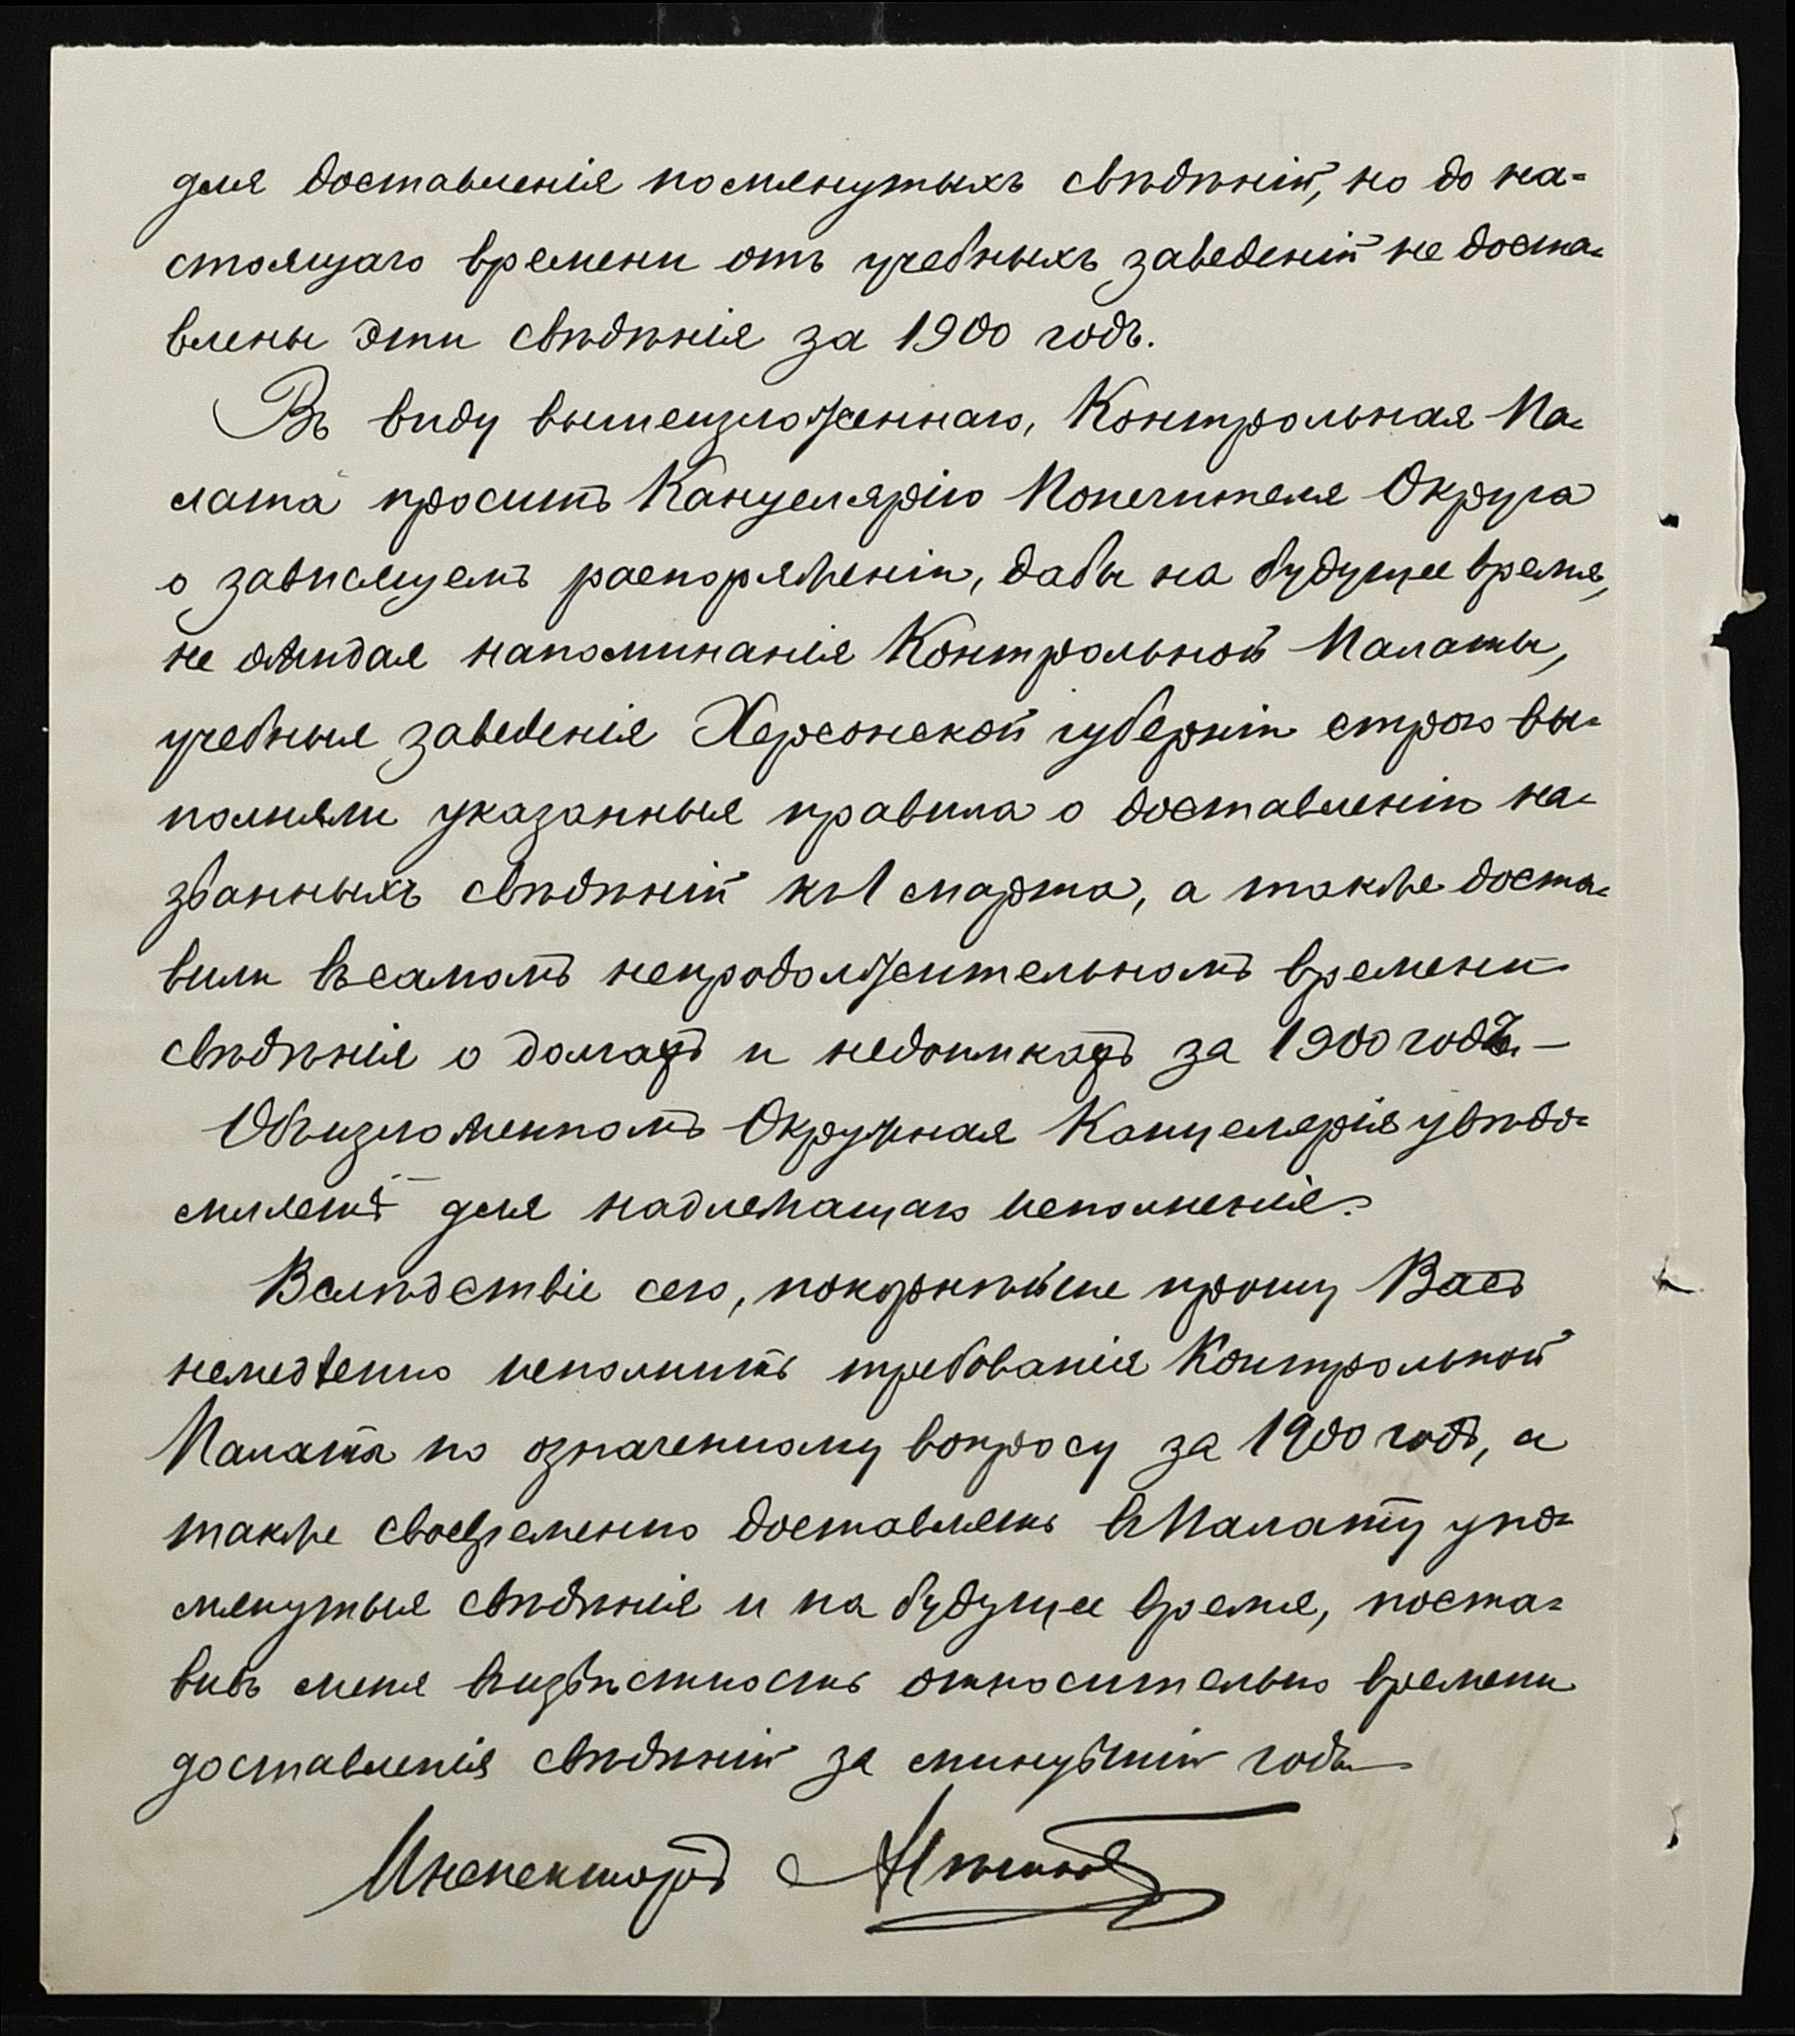 для доставленія помянутыхъ свѣдѣній, но до на=
стоящаго времени отъ учебныхъ заведеній не доста=
влены эти свѣдѣнія за 1900 годъ.
Въ виду вышеизложеннаго, Контрольная Па=
лата проситъ Канцелярію Попечителя Округа
о зависящемъ распоряженіи, дабы на будущее время,
не ожидая напоминанія Контрольной Палаты,
учебныя заведенія Херсонской губерніи строго вы=
полняли указанныя правила о доставленіи на=
званныхъ свѣдѣній къ 1 марта, а также доста=
вили въ самомъ непродолжительномъ времени
свѣдѣнія о долгахъ и недоимкахъ за 1900 годъ. —
Объ изложенномъ Окружная Канцелярія увѣдо=
мляетъ для надлежащаго исполненія.
Вслѣдствіе сего, покорнѣйше прошу Васъ
немедленно исполнить требованія Контрольной
Палаты по означенному вопросу за 1900 годъ, а
также своевременно доставлять въ Палату упо=
мянутыя свѣдѣнія и на будущее время, поста=
вивъ меня въ извѣстность относительно времени
доставленія свѣдѣній за минувшій годъ
Инспекторъ